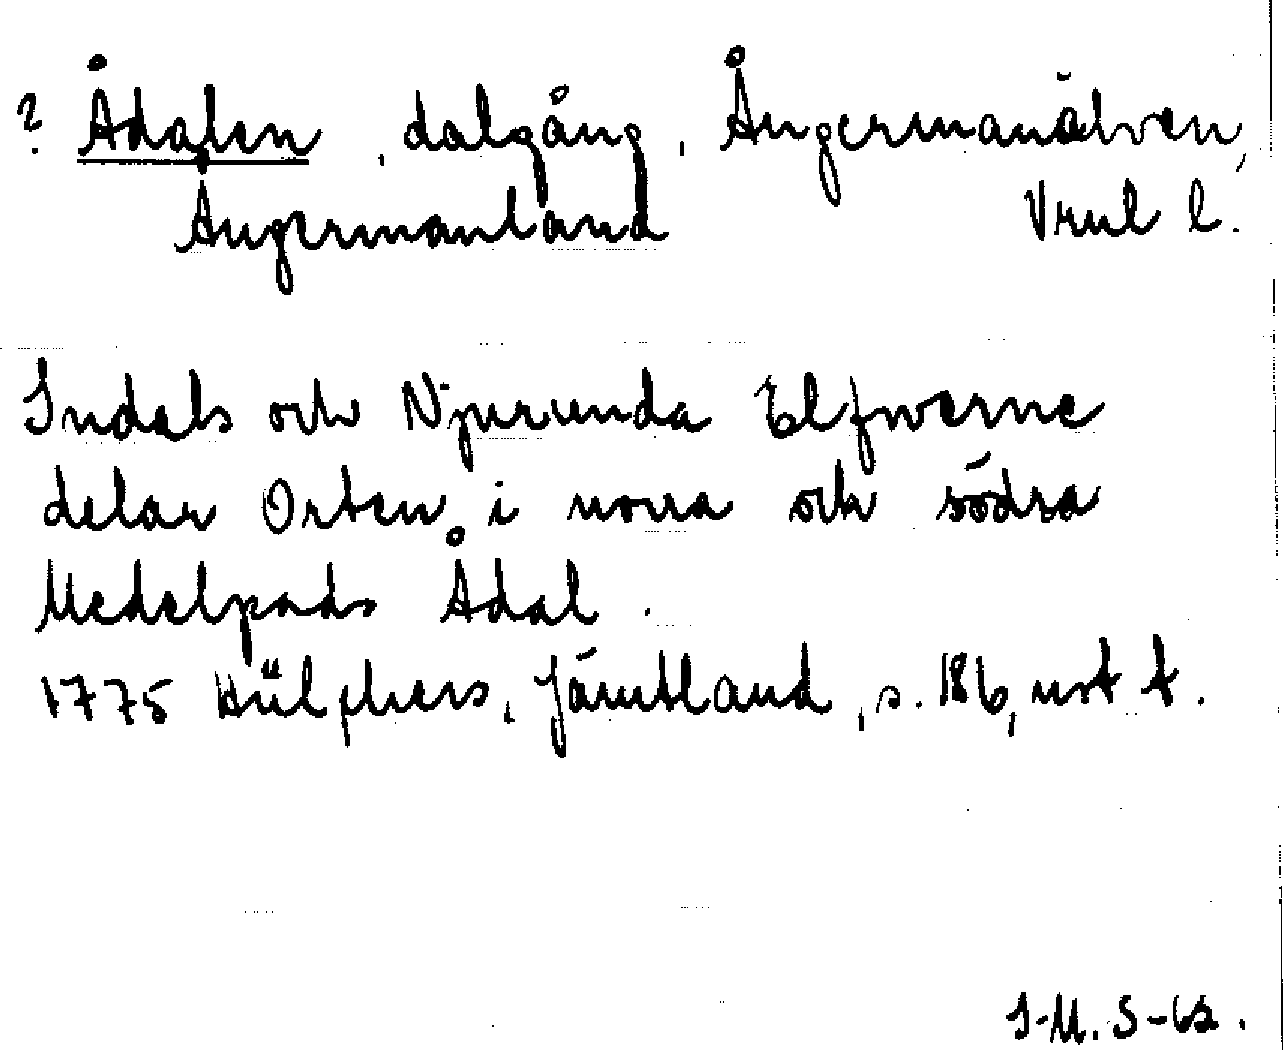 ? Ådalen, dalgång, Ångermanälven,
Ångermanland Vrul l.
Indals och Njurunda Elfwerne
delar Orten i norra och södra
Medelpads Ådal.
1775 Hülphers, Jämtland, s. 186, not t.
I-M. S-62.